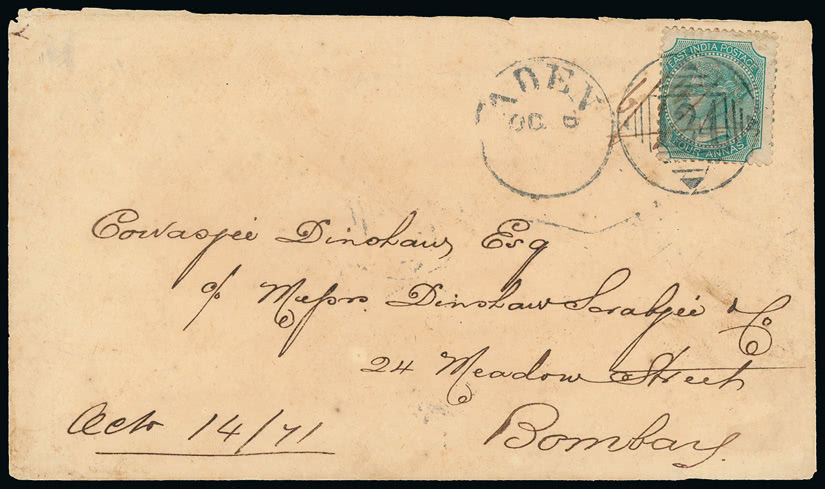 EAST INDIA POSTAGE
ADEN
OC 8
124
FOUR ANNAS
Cowasjee Dinshaw, Esq
c/o Messrs. Dinshaw Sorabjee & Co
24 Meadow Street
Bombay
14/71